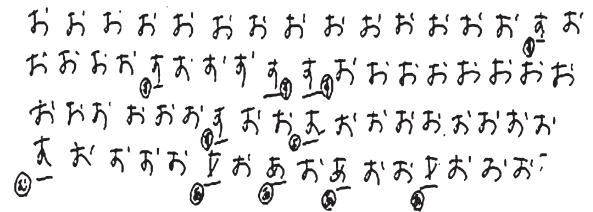 おおおおおおおおおおおおおおすお
す
おおおおすおおおすすおおおおおおおお
す す す
おおおおおおすおおおおおおおおおお
す
おおおおおあおあおおおおお
む あ あ あ あ